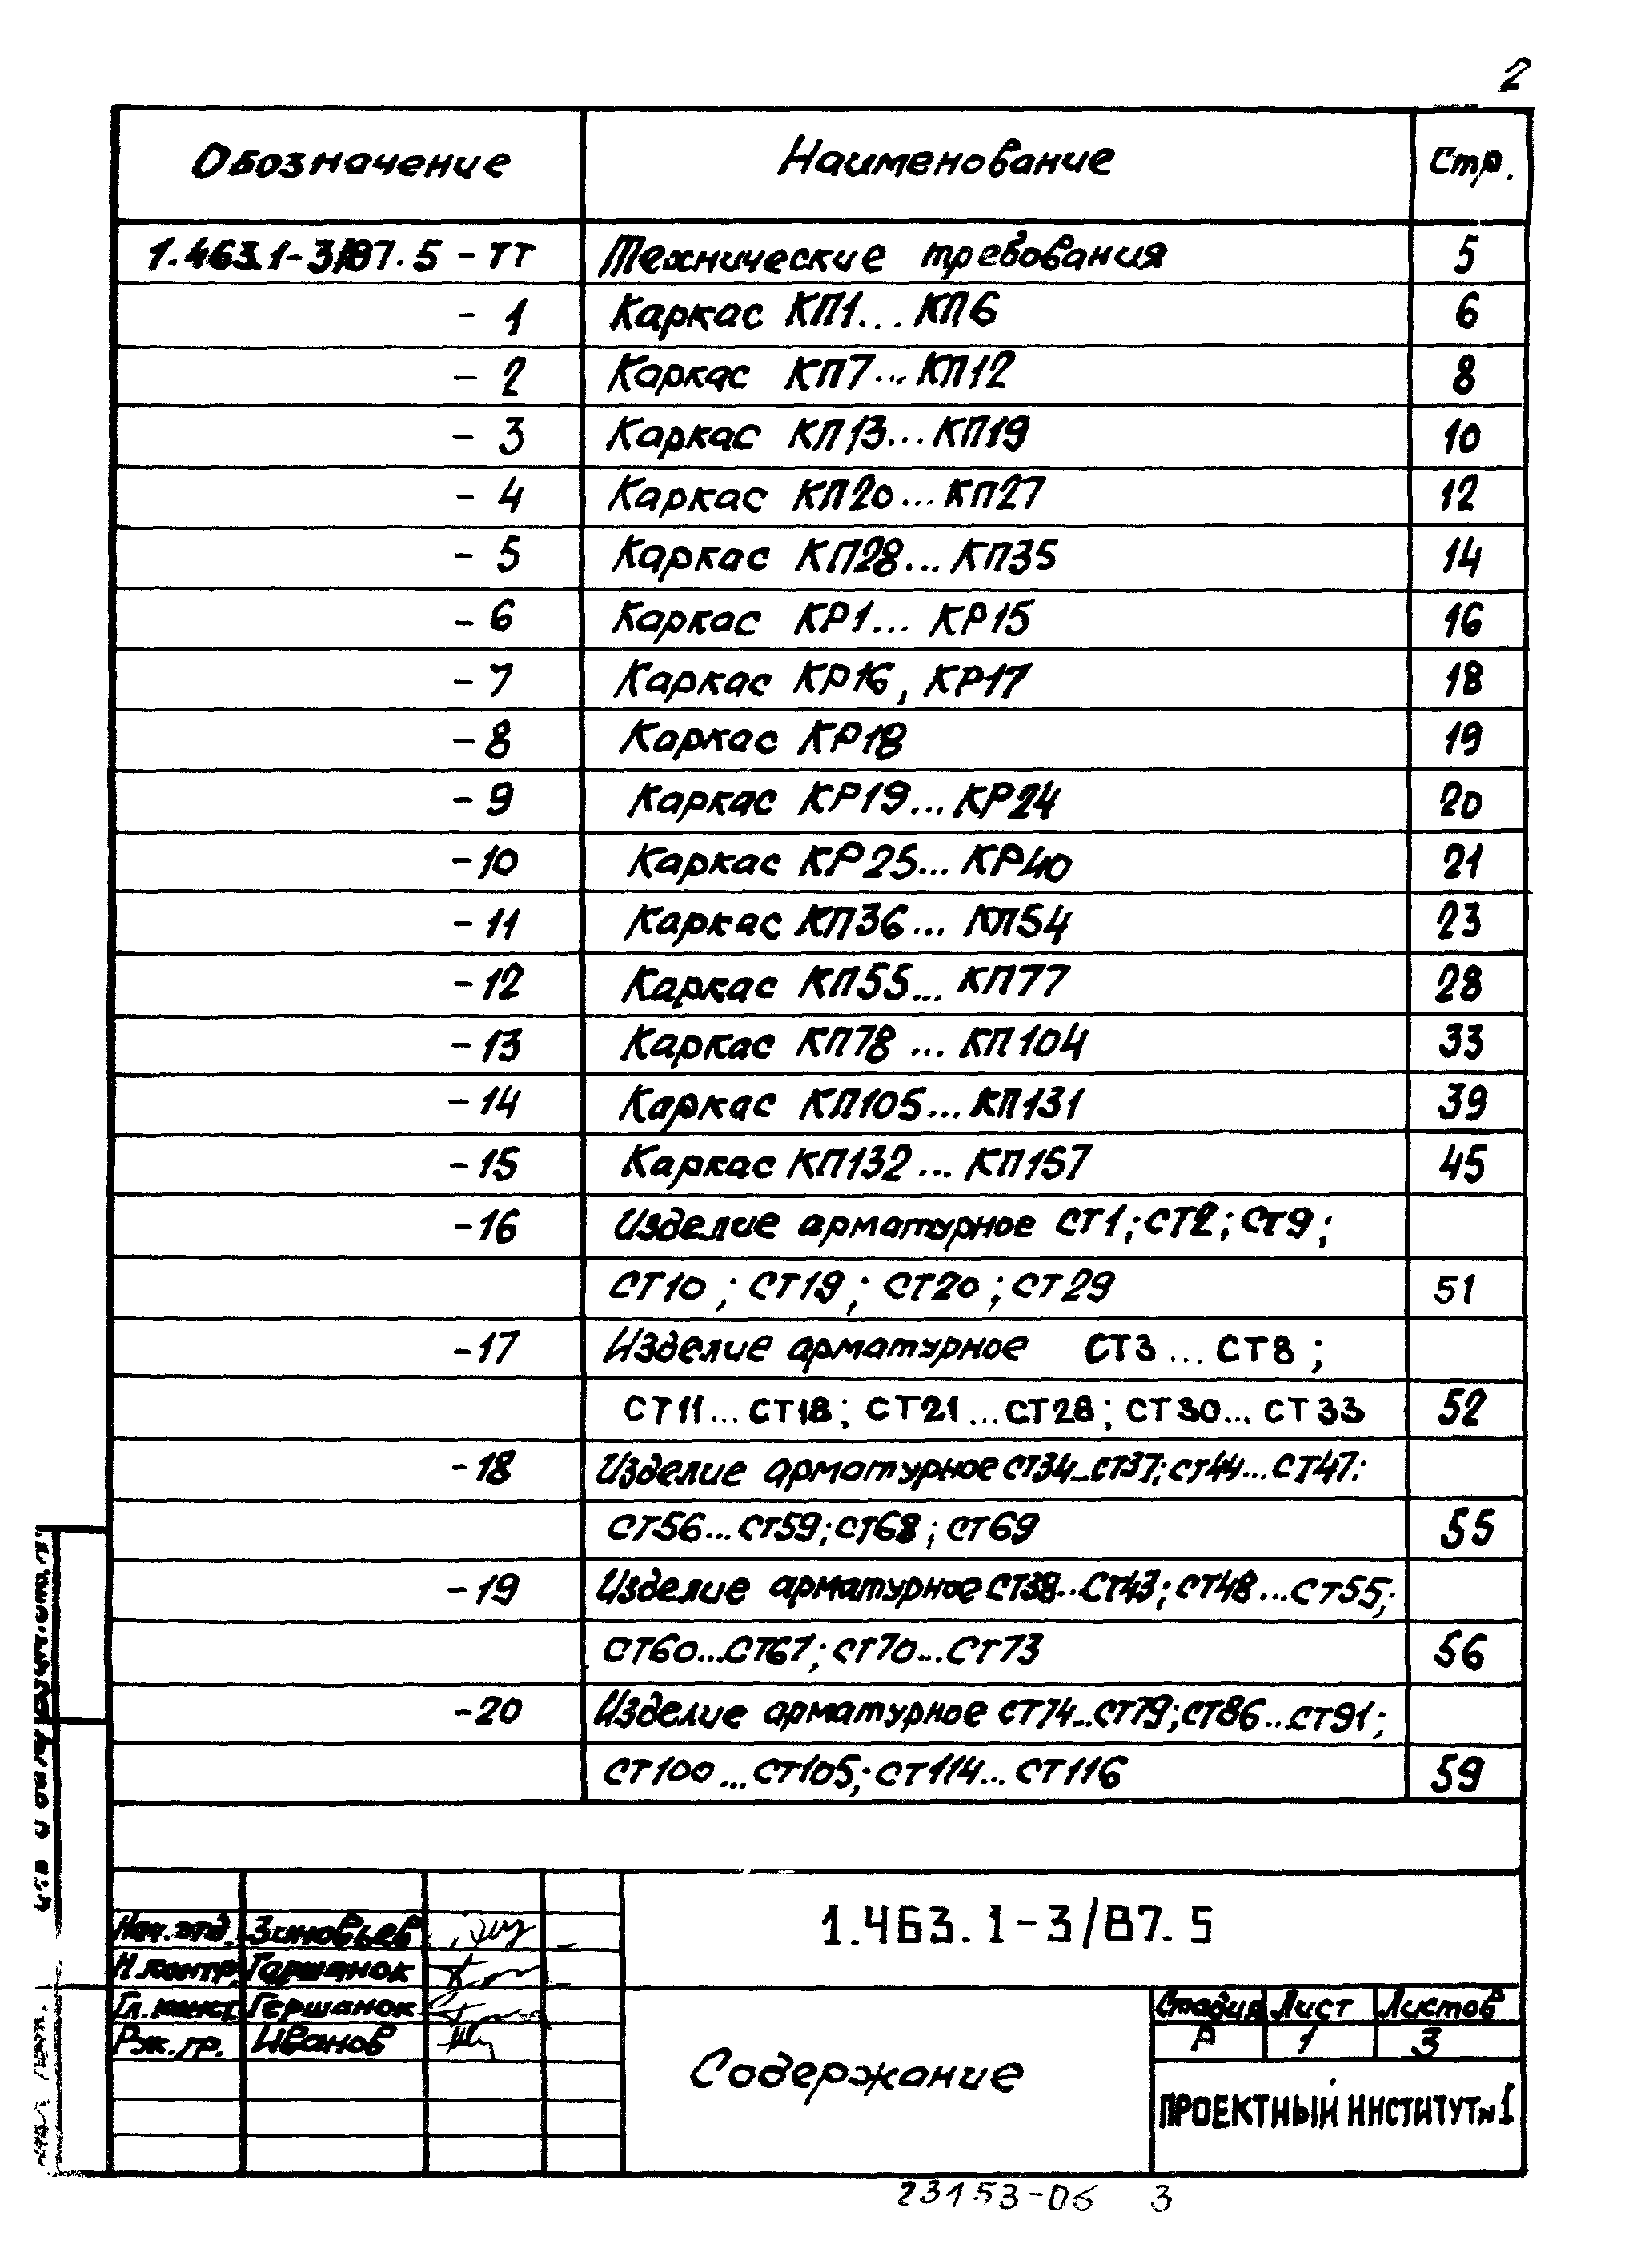 2
Обозначение Наименование Стр.
1.463.1-3/87.5 - ТТ Технические требования 5
- 1 Каркас КП1...КП6 6
- 2 Каркас КП7...КП12 8
- 3 Каркас КП13...КП19 10
- 4 Каркас КП20...КП27 12
- 5 Каркас КП28...КП35 14
- 6 Каркас КР1...КР15 16
- 7 Каркас КР16, КР17 18
- 8 Каркас КР18 19
- 9 Каркас КР19...КР24 20
- 10 Каркас КР25...КР40 21
- 11 Каркас КП36...КП54 23
- 12 Каркас КП55...КП77 28
- 13 Каркас КП78...КП104 33
- 14 Каркас КП105...КП131 39
- 15 Каркас КП132...КП157 45
- 16 Изделие арматурное СТ1; СТ2; СТ9;
СТ10; СТ19; СТ20; СТ29 51
- 17 Изделие арматурное СТ3...СТ8;
СТ11...СТ18; СТ21...СТ28; СТ30...СТ33 52
- 18 Изделие арматурное СТ34...СТ37; СТ44...СТ47:
СТ56...СТ59; СТ68; СТ69 55
- 19 Изделие арматурное СТ38...СТ43; СТ48...СТ55;
СТ60...СТ67; СТ70...СТ73 56
- 20 Изделие арматурное СТ74...СТ79; СТ86...СТ91;
СТ100...СТ105; СТ114...СТ116 59
Нач. отд. Зиновьев
Н.контр. Гершанок
Гл. конст. Гершанок
Рук. гр. Иванов
1.463.1-3/87.5
Содержание
Стадия Лист Листов
Р 1 3
ПРОЕКТНЫЙ ИНСТИТУТ №1
23153-06 3